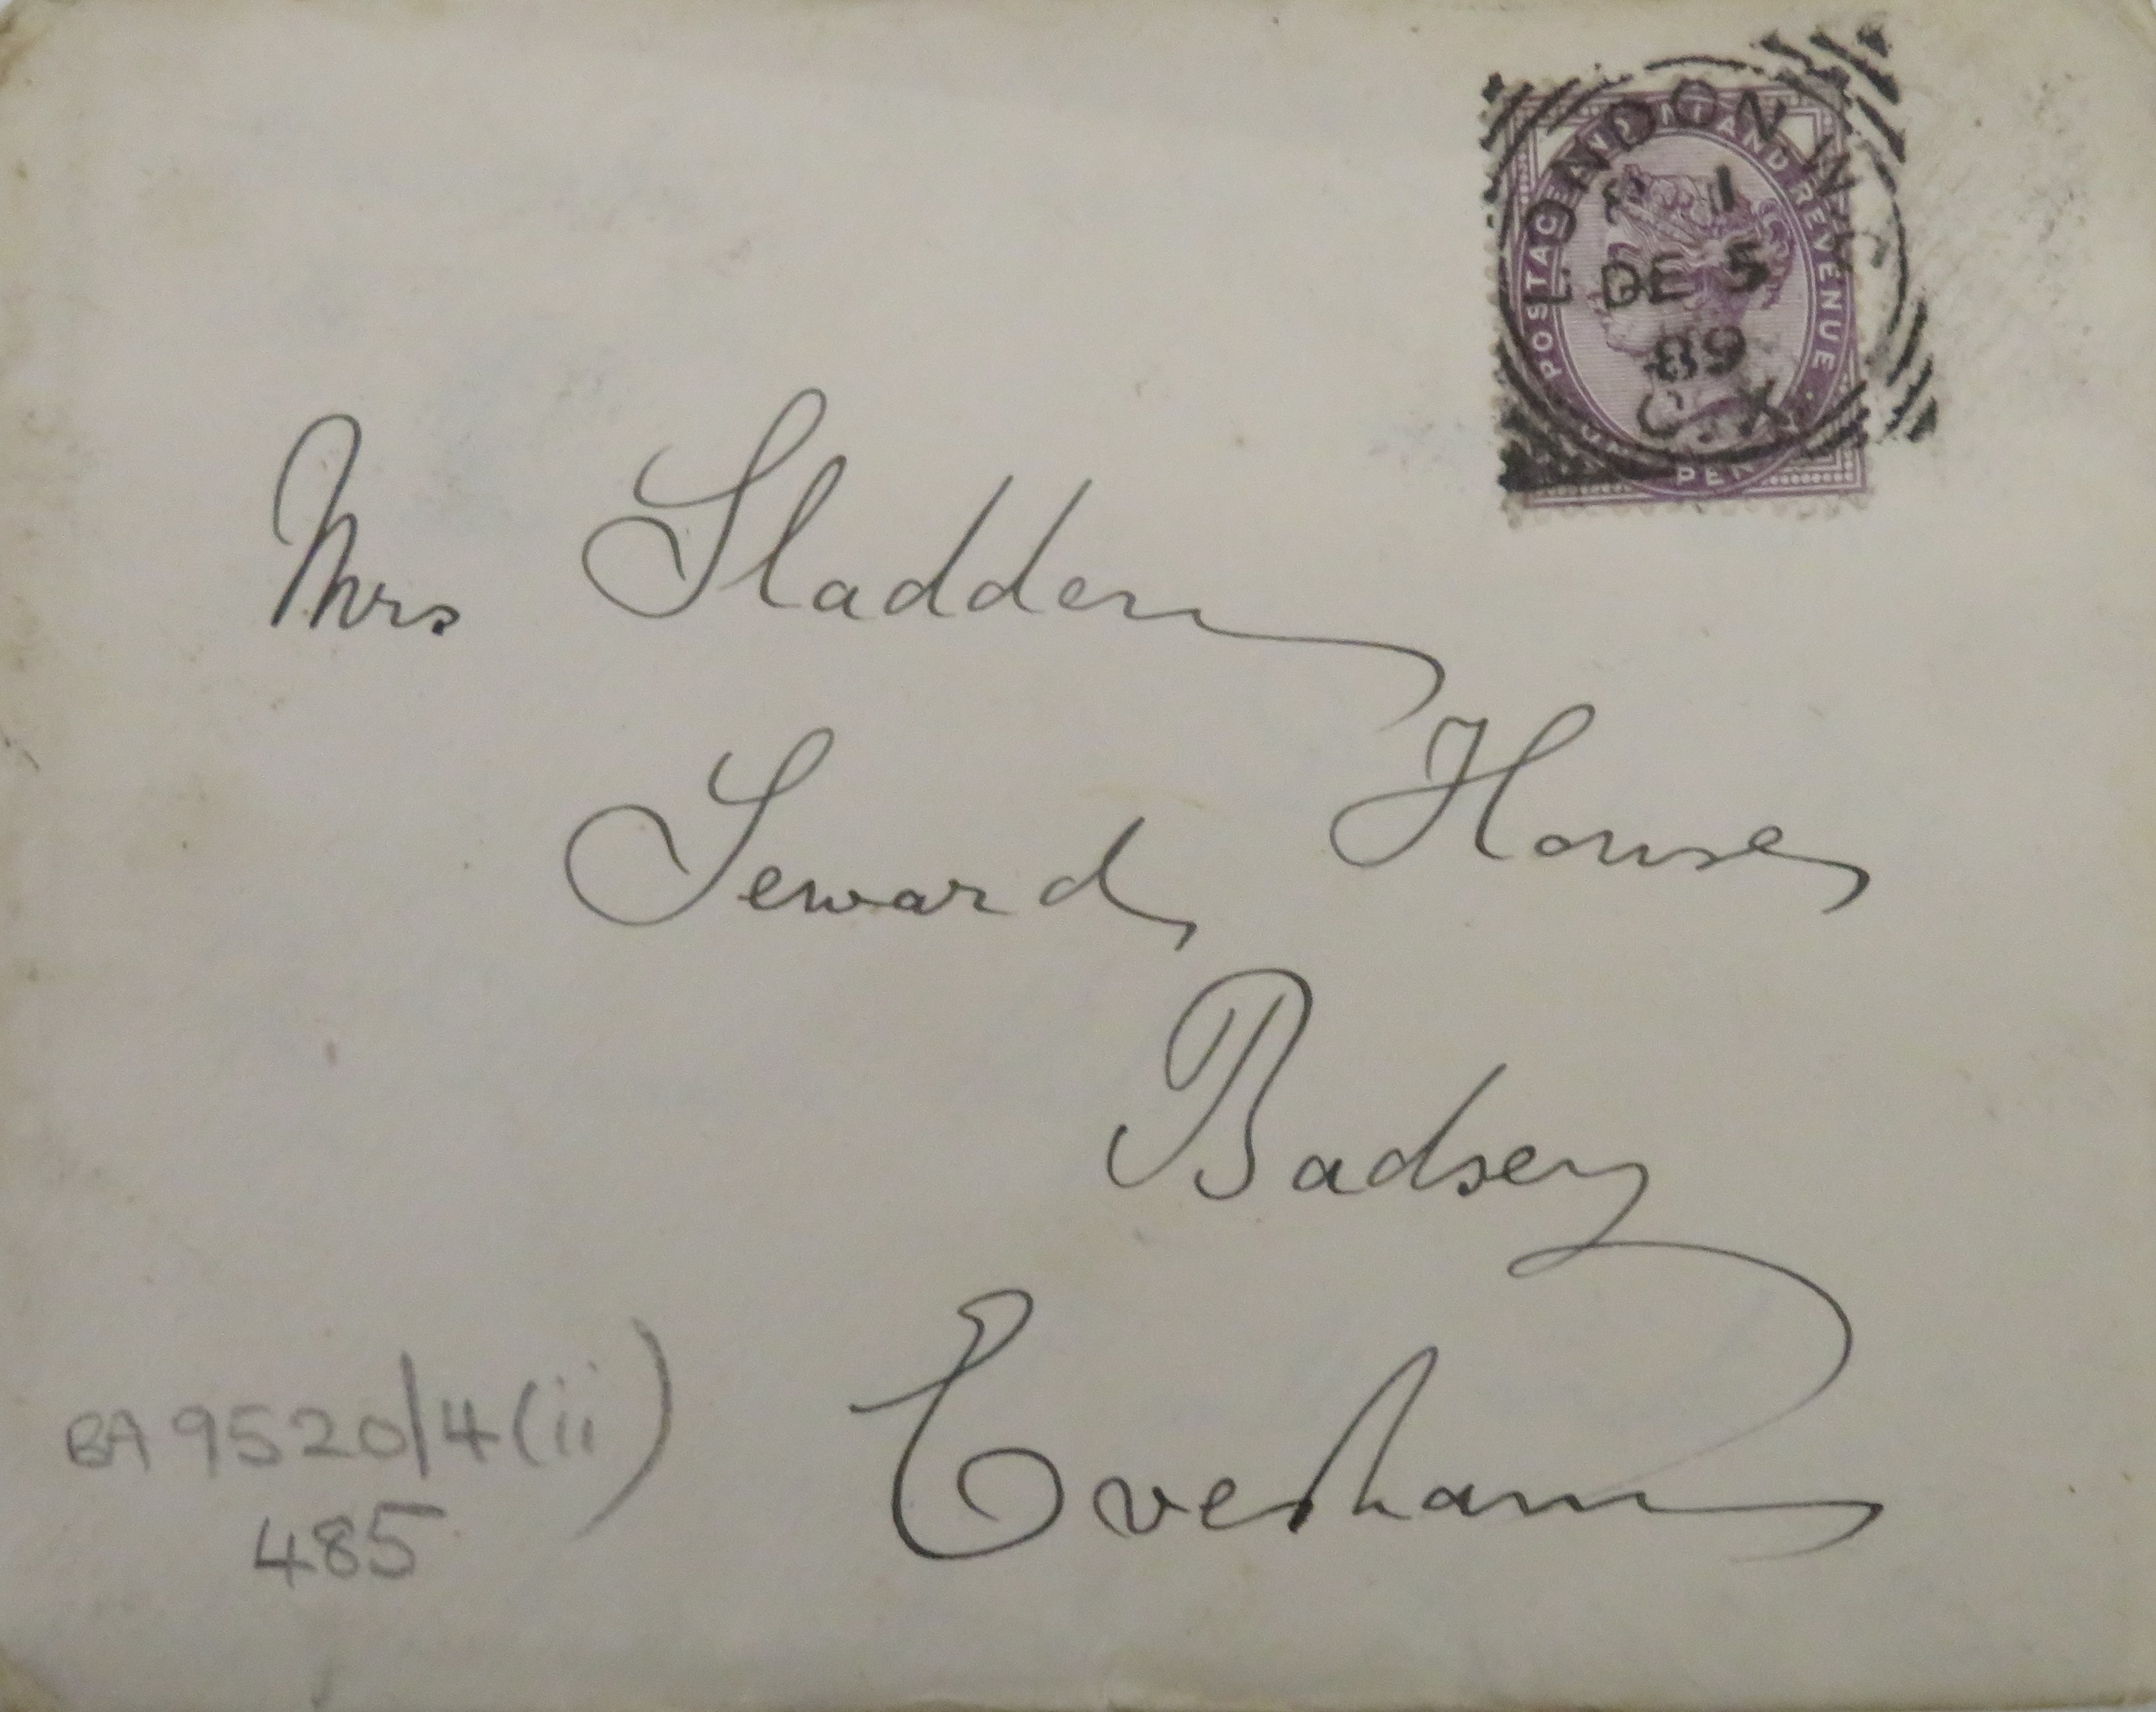 LONDON. W.C
1
DE 5
89
C. X
POSTAGE AND REVENUE
Mrs Sladden
Seward House
Badsey
Evesham
BA 9520/4(ii)
485